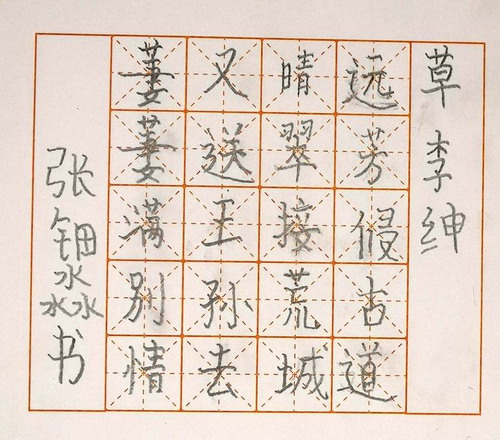 草李绅
远芳侵古道
晴翠接荒城
又送王孙去
萋萋满别情
张钿淼书